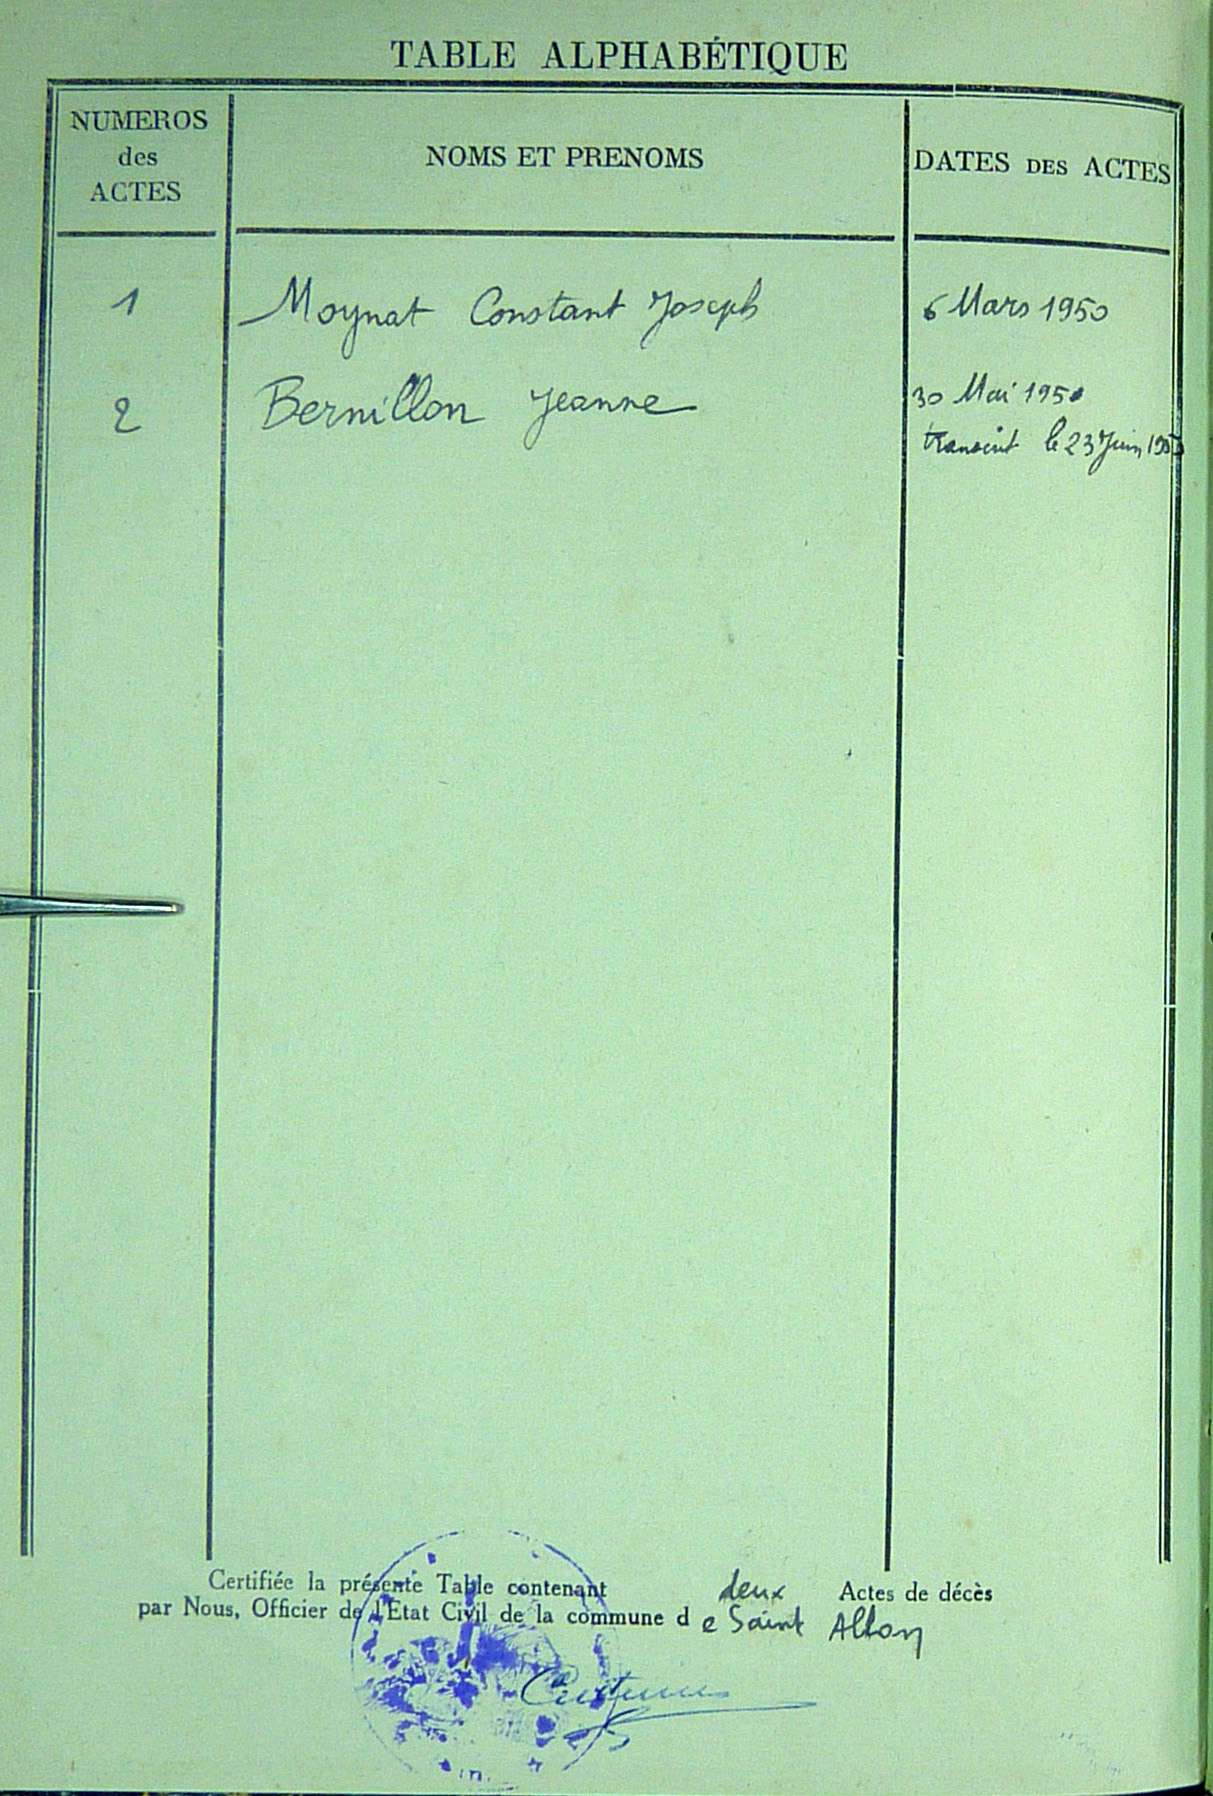 TABLE ALPHABÉTIQUE
NUMEROS
des
ACTES
NOMS ET PRENOMS
DATES DES ACTES
1 Moynat Constant Joseph 6 Mars 1950
2 Bernillon Jeanne 30 Mai 1950
transcrit le 23 Juin 1950
Certifiée la présente Table contenant deux Actes de décès
par Nous, Officier de l'Etat Civil de la commune d e Saint Alban